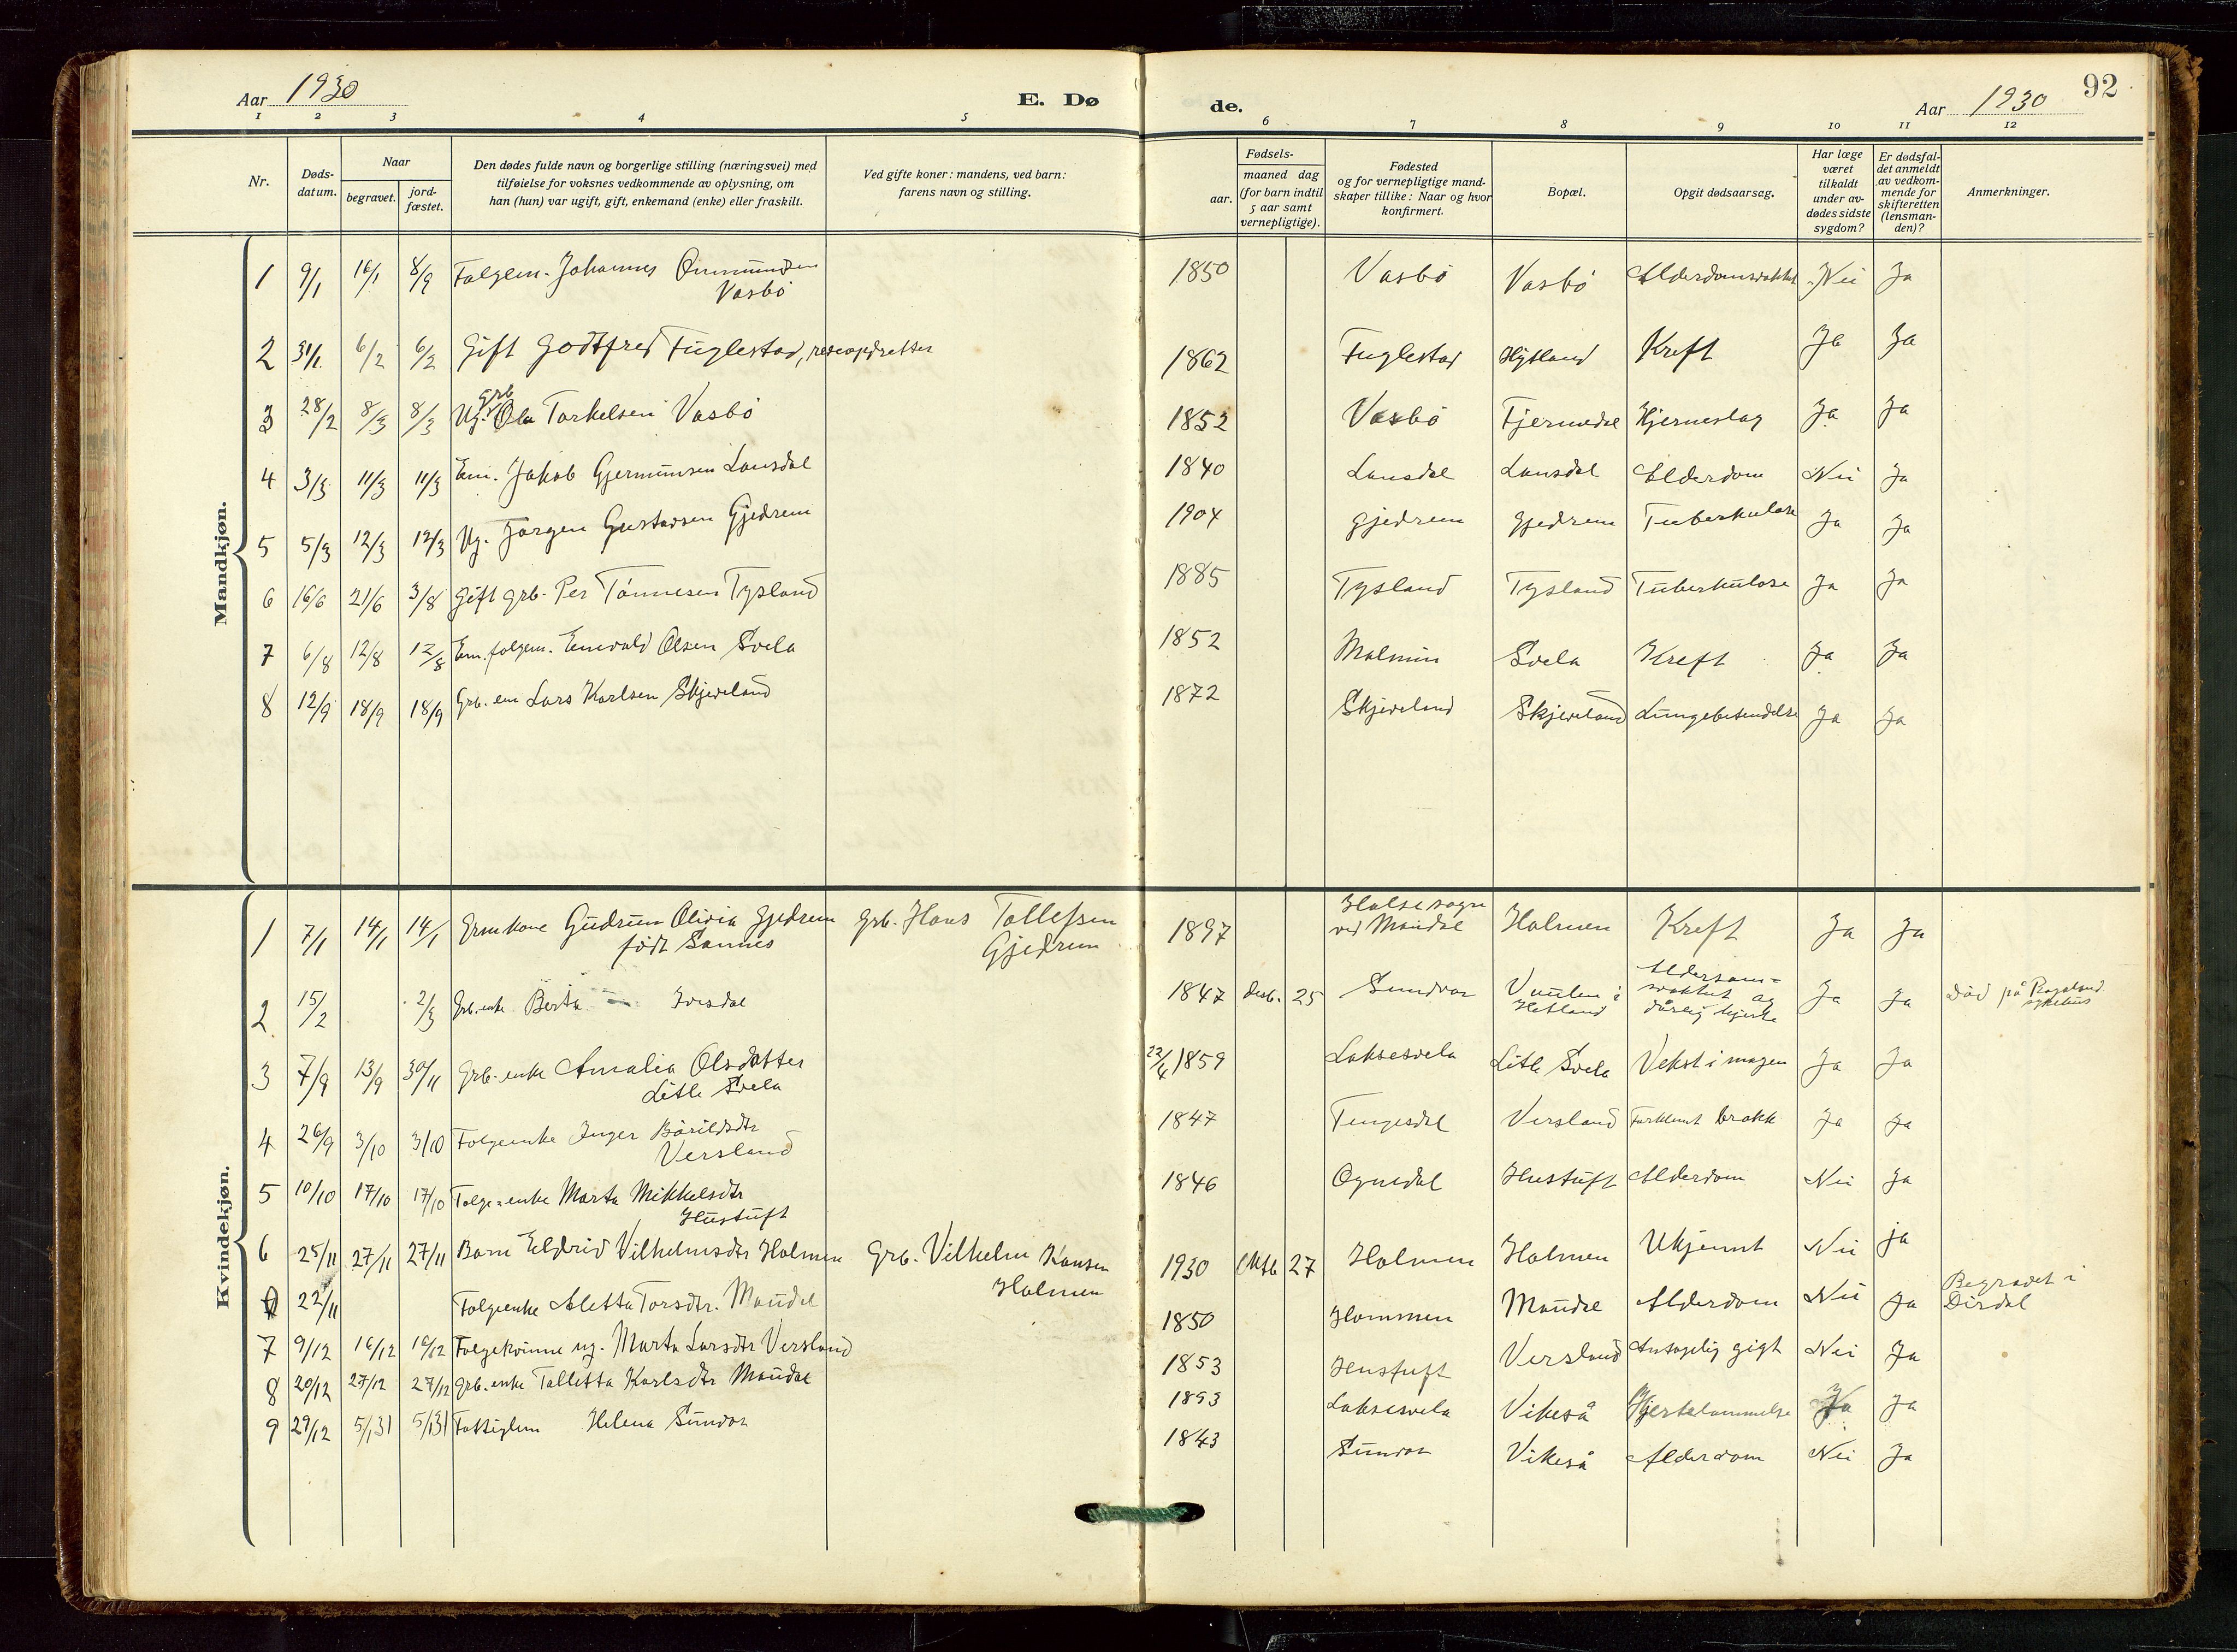 Aar 1930
E. Dø
de.
Aar 1930
92
1 2 3 4 5 6 7 8 9 10 11 12
Nr.
Døds-
datum.
Naar
begravet.
jord-
fæstet.
Den dødes fulde navn og borgerlige stilling (næringsvei) med
tilføielse for voksnes vedkommende av oplysning, om
han (hun) var ugift, gift, enkemand (enke) eller fraskilt.
Ved gifte koner: mandens, ved barn:
farens navn og stilling.
Fødsels-
aar.
maaned dag
(for barn indtil
5 aar samt
vernepligtige).
Fødested
og for vernepligtige mand-
skaper tillike: Naar og hvor
konfirmert.
Bopæl.
Opgit dødsaarsag.
Har læge
været
tilkaldt
under av-
dødes sidste
sygdom?
Er dødsfal-
det anmeldt
av vedkom-
mende for
skifteretten
(lensman-
den)?
Anmerkninger.
Mandkjøn.
1 9/1 16/1 8/9 Folgem. Johannes Ommundsen 1850 Vasbö Vasbö Nei Ja
Vasbö
2 31/1 6/2 6/2 Gift Godtfred Fuglestad, 1862 Fuglestad Hytland Kreft Ja Ja
grb
3 28/2 8/3 8/3 Ug. Ola Torkelsen Vasbö 1852 Vasbö Fjermedal Hjerneslag Ja Ja
4 3/3 11/3 11/3 Em. Jakob Gjermunsen Lansdal 1840 Lansdal Lansdal Alderdom Nei Ja
5 5/3 12/3 12/3 Ug. Jørgen Gustavsen Gjedrem 1904 Gjedrem Gjedrem Tuberkulose Ja Ja
6 16/6 21/6 3/8 Gift grb. Per Tönnesen Tysland 1885 Tysland Tysland Tuberkulose Ja Ja
7 6/8 12/8 12/8 Em. folgem. Enevald Olsen Svela 1852 Malmin Svela Kreft Ja Ja
8 12/9 18/9 18/9 Grb. em Lars Karlsen Skjeveland 1872 Skjeveland Skjeveland Lungebetendelse Ja Ja
Kvindekjøn.
1 7/1 14/1 14/1 Gudrun Olivia Gjedrem Grb. Hans Tollefsen 1897 Halse sogn Holmen Kreft Ja Ja
født Sannes Gjedrem ved Mandal
2 15/2 2/3 Grb. enke Berta Ivesdal 1847 desb. 25 Sundvor i Hetland Alderdom=
svakhet og
dårlig hjerte Ja Ja död på Rogaland
sykehus
3 7/9 13/9 30/11 Grb. enke Amalia Olsdatter 22/4 1859 Laksesvela Litle Svela Vekst i magen Ja Ja
Litle Svela
4 26/9 3/10 3/10 Folgeenke Inger Bårildsdtr 1847 Tengesdal Versland brokk Ja Ja
Versland
5 10/10 17/10 17/10 Folge-enke Marta Mikkelsdtr 1846 Ognedal Hustuft Alderdom Nei Ja
Hustuft
6 25/11 27/11 27/11 Barn Eldrid Vilhelmsdtr Holmen Grb. Vilhelm Hansen 1930 Oktb 27 Holmen Holmen Ukjennt Nei ja
Holmen
22/11 Folgeenke Aletta Torsdtr. Maudal 1850 Hommen Maudal Alderdom Nei Ja Begravet i
Dirdal
7 9/12 16/12 16/12 Folgekvinne ug. Marta Larsdtr Versland 1853 Hustuft Versland Antagelig gigt Nei Ja
8 20/12 27/12 27/12 Grb. enke Talletta Karlsdtr Maudal 1853 Laksesvela Vikeså Hjertelammelse Ja Ja
9 29/12 5/1 31 5/1 31 Fattiglem Helena Sundvor 1843 Sundvor Vikeså Alderdom Nei Ja